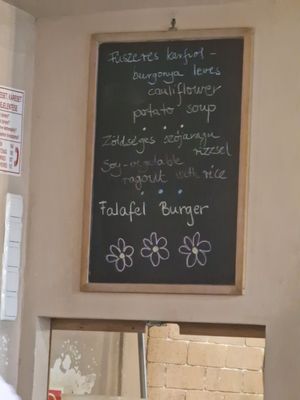 Fűszeres karfiol -
burgonya leves
cauliflower
potato soup
Zöldséges szójaragu
rizzsel
Soy-vegetable
ragout with rice
Falafel Burger